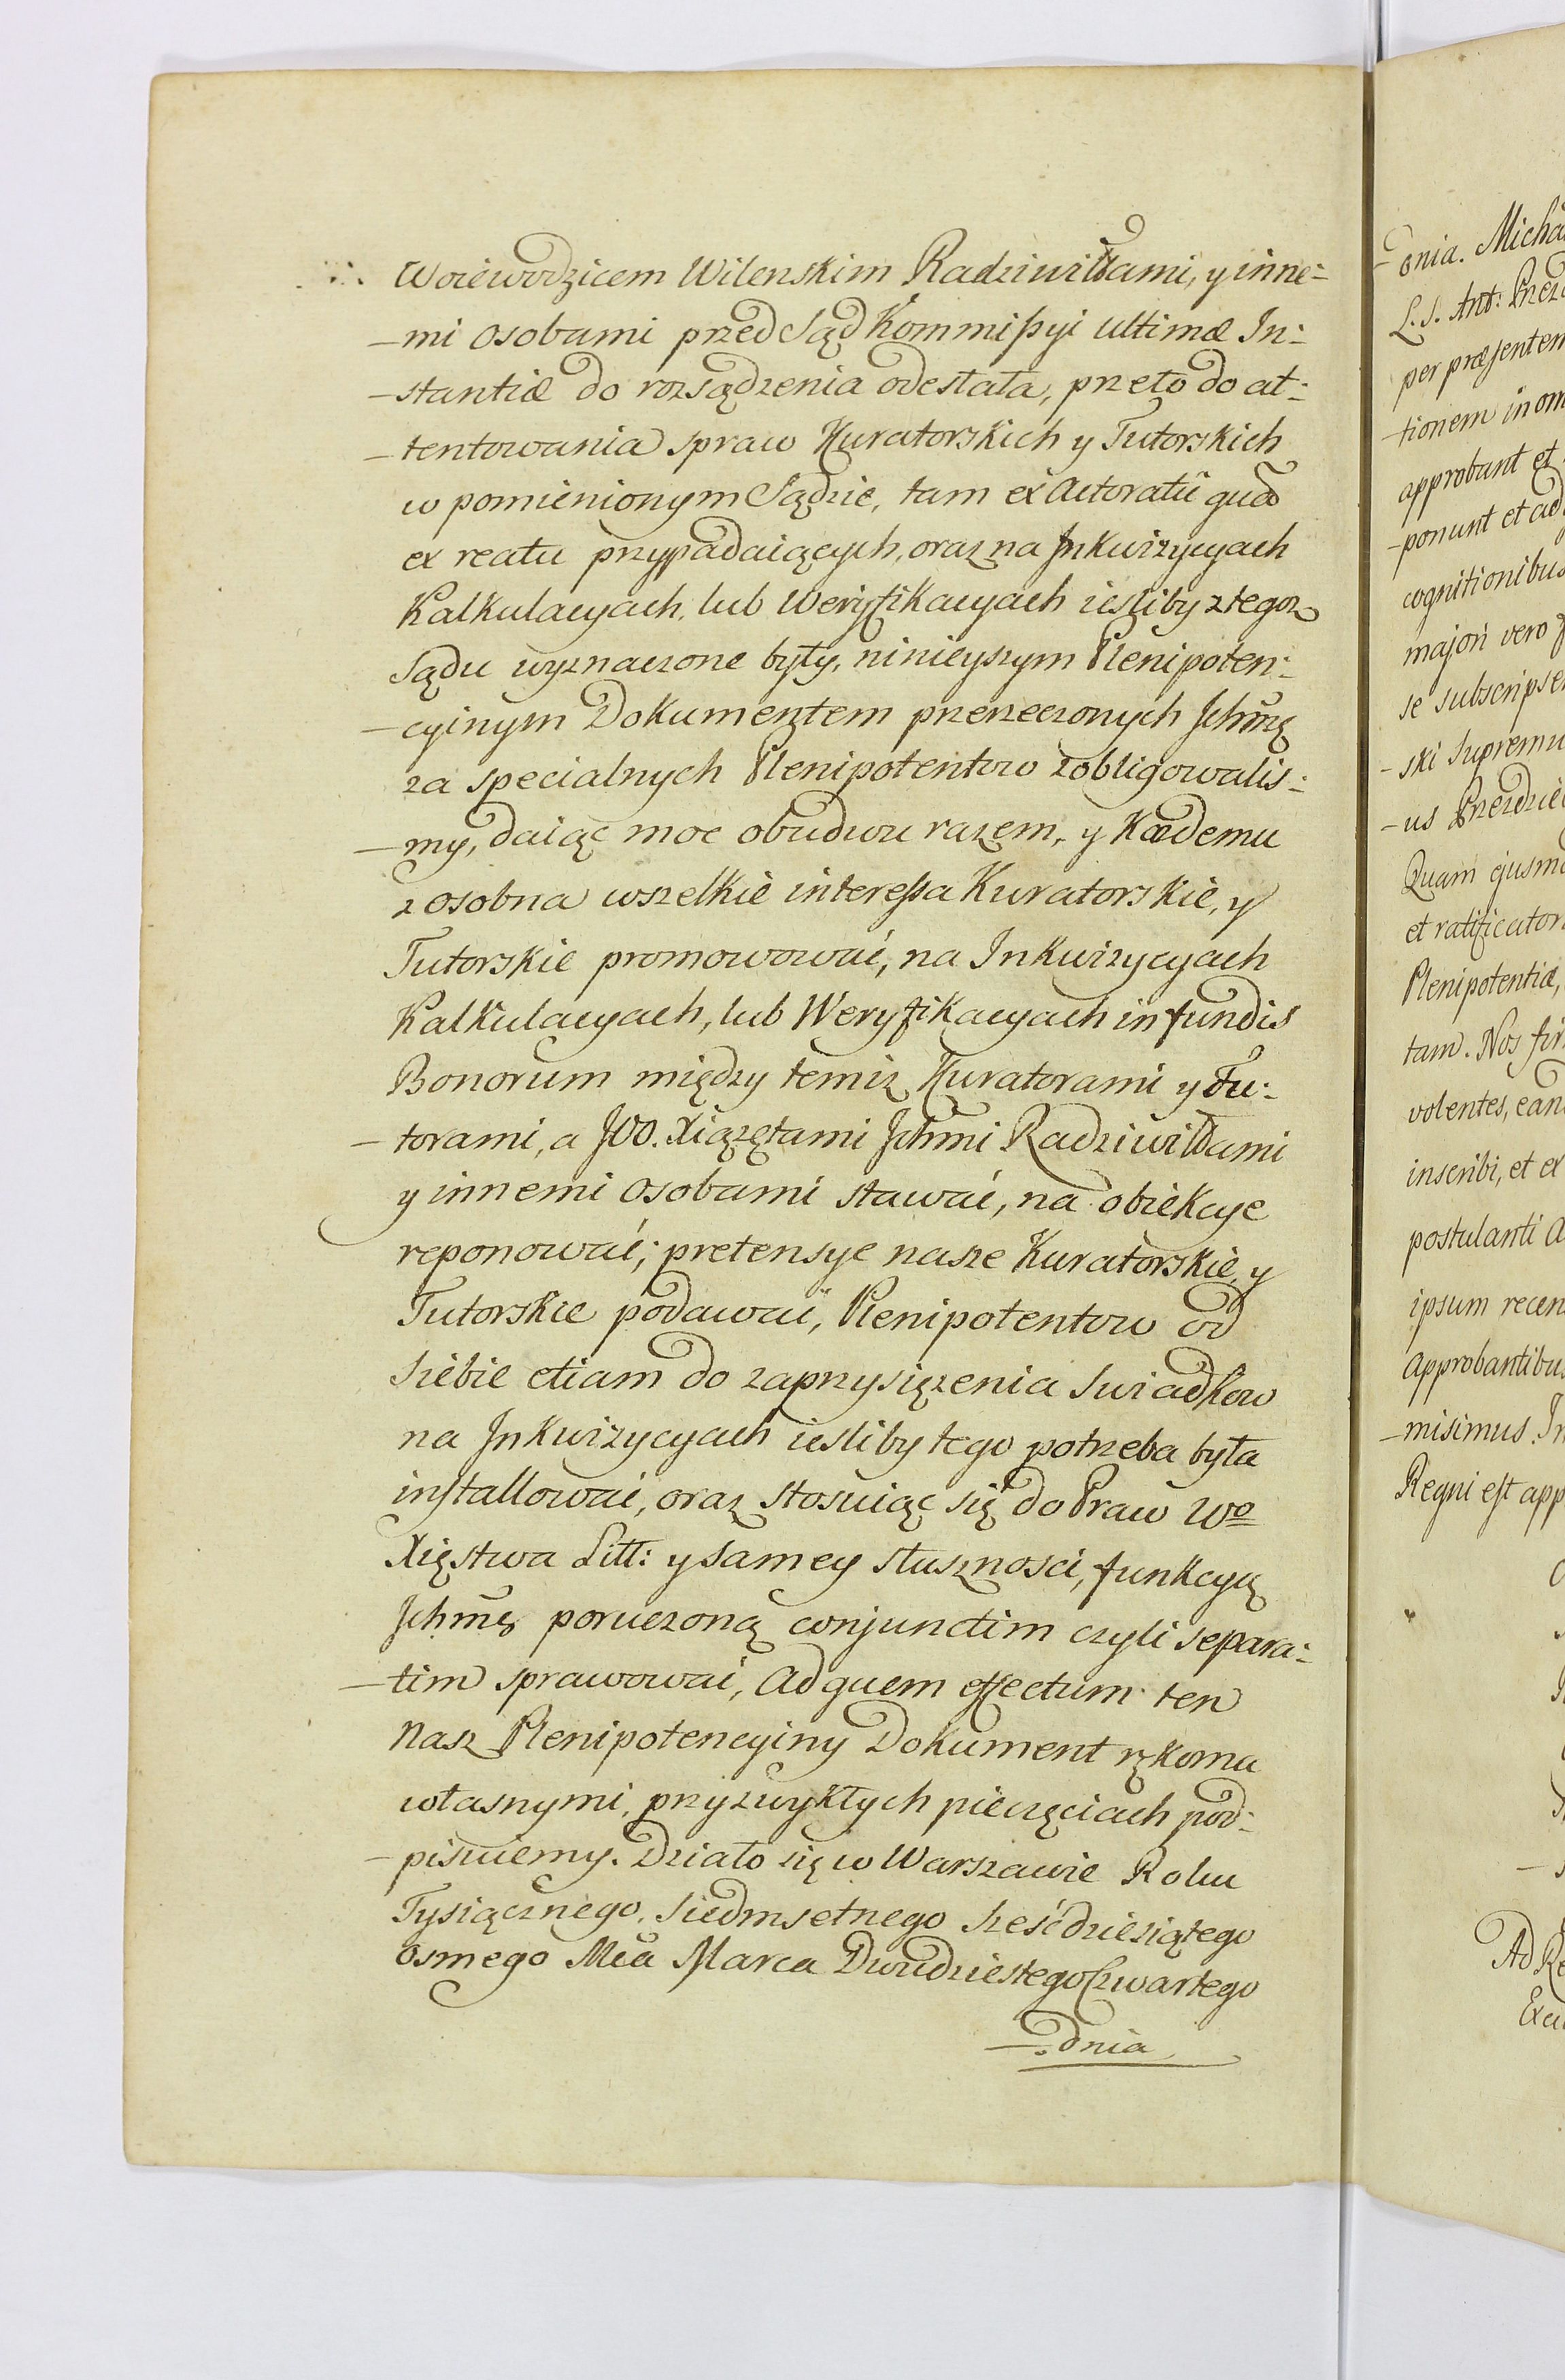 Woiewodzicem Wilenskim Radziwiłłami, y inne-
-mi osobami przed Sąd Kommißyi ultimæ In-
-stantiæ do rozsądzenia odestała, przeto do at-
-tentowania spraw Kuratorskich y Tutorskich
w pomienionym Sądzie, tam ex Actoratu quàm
ex reatu przypadaiących, oraz na Inkwizycyach
Kalkulacyach, lub Weryfikacyach iesliby z tegoż
Sądu wyznaczone były, ninieyszym Plenipoten-
-cyinym Dokumentem przerzeczonych Jchmę
za specialnych Plenipotentow zobligowalis-
-my, daiąc moc obudwu razem, y Każdemu
z osobna wszelkie intereßa Kuratorskie, y
Tutorskie promowować, na Inkwizycyach
Kalkulacyach, lub Weryfikacyach in fundis
Bonorum między temiż Kuratorami y Tu-
-torami, a JOO. Xiążętami Jchmi Radziwiłłami
y innemi osobami stawać, na obiekcye
reponować, pretensye nasze Kuratorskie, y
Tutorskie podawać, Plenipotentow od
Siebie etiam do zaprzysiężenia Swiadkow
na Inkwizycyach iesliby tego potrzeba była
installować, oraz stosuiąc się do Praw Wo
Xięstwa Litt: y samey słuszności, funkcyą
Jchmę poruczoną conjunctim czyli separa-
-tim sprawować, Ad quem effectum ten
Nasz Plenipotencyiny Dokument rękoma
własnymi, przy zwykłych pieczęciach pod-
-pisuiemy. Działo się w Warszawie Roku
Tysiącznego, Siedmsetnego Sześćdziesiątego
osmego Mca Marca Dwudziestego Czwartego
dnia
-onia. Micha
L.S. Ant: Przez
per præsentem
-tionem in om
approbant et
-ponunt et ad
cognitionibus
majori vero
se subscripse
-ski Supremu
-us Przezdzie
Quam ejusmo
et ratificator
Plenipotentiæ,
tam. Nos
volentes, ean
inscribi, et ex
postulanti a
ipsum recen
approbantibu
-misimus. In
Regni est app
Ad Re